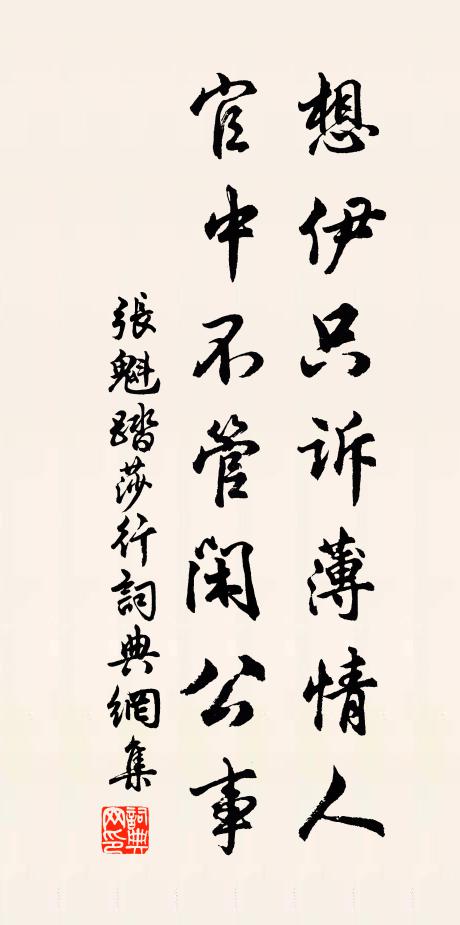 想伊只訴薄情人
官中不管閑公事
張魁踏莎行詞典網集
詞典网印